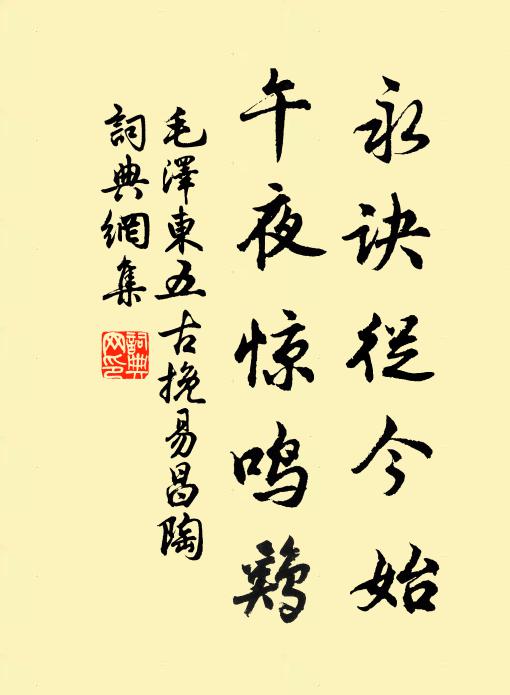 永诀從今始
午夜惊鸣鷄
毛澤東五古挽易昌陶
詞典網集
詞典
网印